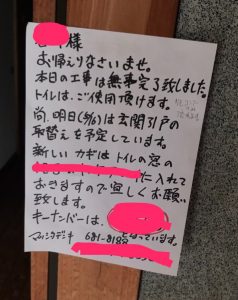 様
お帰りなさいませ。
本日の工事は無事完了致しました。
トイレは、ご使用頂けます。
尚、明日(9/6)は玄関引戸の
取替えを予定しています。
新しいカギはトイレの窓の
に入れて
おきますので宜しくお願い
致します。
キーナンバーは、
681-8185 となっています。